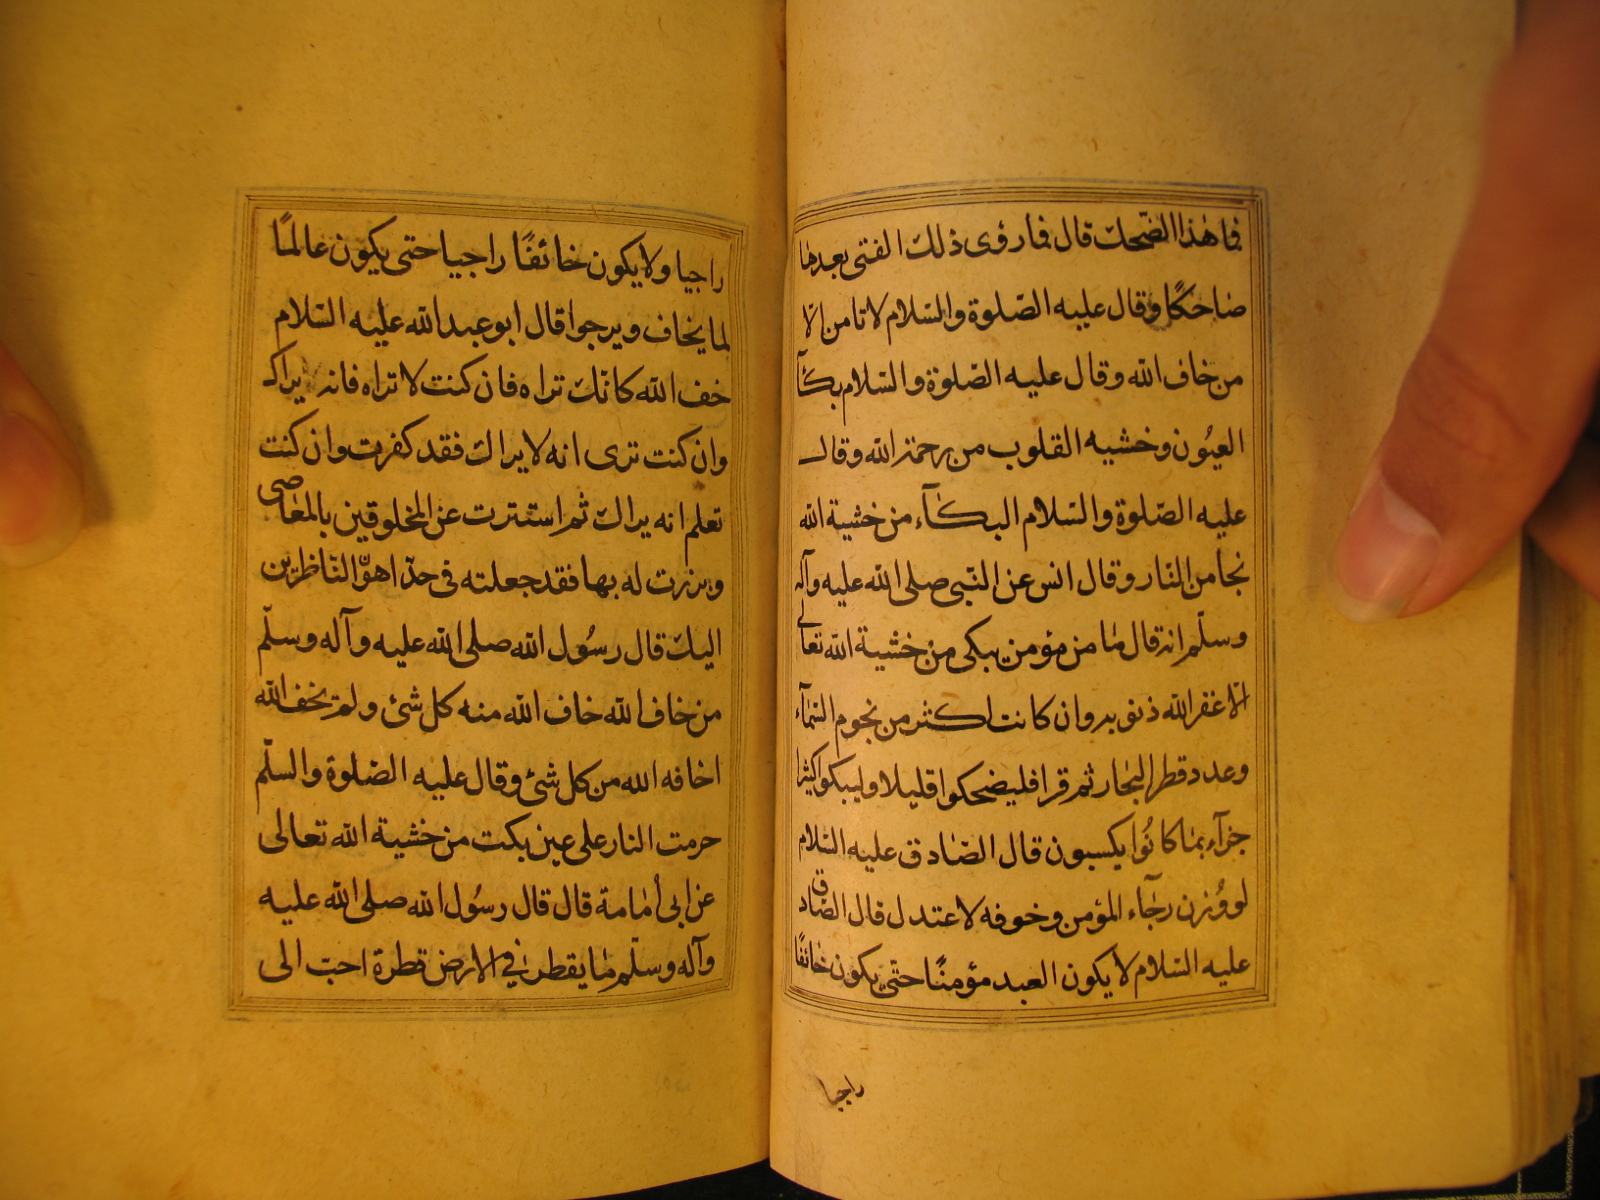 فما هذا الضّحك قال فما رؤى ذلك الفتى بعدها
ضاحكًا وقال عليه الصّلوة والسّلام لا تامن الّا
من خاف الله وقال عليه الصّلوة والسّلام بكآ
العيُون وخشيه القلوب من رحمة الله وقال
عليه الصّلوة والسّلام البكآء من خشية الله
نجا من النّار وقال انس عن النّبى صلى الله عليه وآله
وسلّم انه قال ما من مؤمن يبكى من خشية الله تعالى
الّا غفر الله ذنوبه وان كانت اكثر من نجوم السّمآء
وعدد قطر البحار ثم قرا فليضحكوا قليلا وليبكوا كثيرا
جزآء بما كانُوا يكسبون قال الصّادق عليه السّلام
لو وُزن رجآء المؤمن وخوفه لاعتدل قال الصّادق
عليه السّلام لا يكون العبد مؤمنًا حتّى يكون خائفًا
راجيا
راجيا ولا يكون خائفًا راجيا حتى يكون عالمًا
لما يخاف ويرجوا قال ابو عبد الله عليه السّلام
خف الله كانّك تراه فان كنت لا تراه فانه يراك
وان كنت ترى انه لا يراك فقد كفرت وان كنت
تعلم انه يراك ثم استترت عن المخلوقين بالمعاصى
وبرزت له بها فقد جعلته فى حدّ اهوّ النّاظرين
اليك قال رسُول الله صلى الله عليه وآله وسلّم
من خاف الله خاف الله منه كل شئ ولم يخف الله
اخافه الله من كل شئ وقال عليه الصّلوة والسلّم
حرمت النار على عين بكت من خشية الله تعالى
عن ابى أمامة قال قال رسُول الله صلى الله عليه
وآله وسلّم ما يقطر فى الارض قطرة احبّ الى